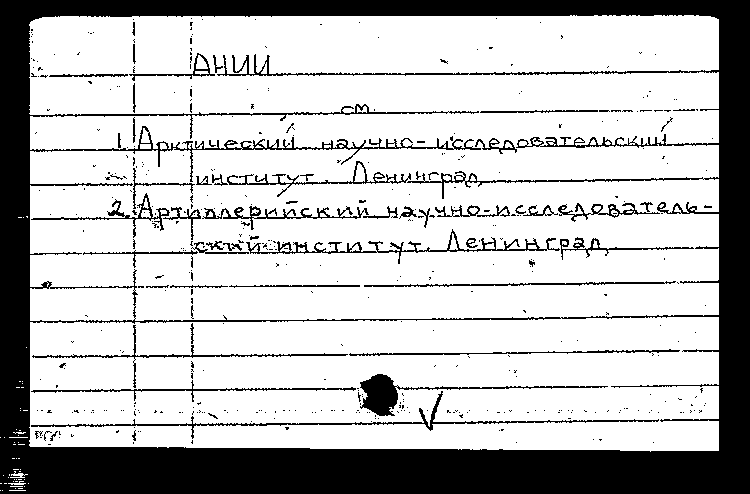 АНИИ
см.
1. Арктический научно-исследовательский
институт. Ленинград
2. Артиллерийский научно-исследователь-
ский институт. Ленинград